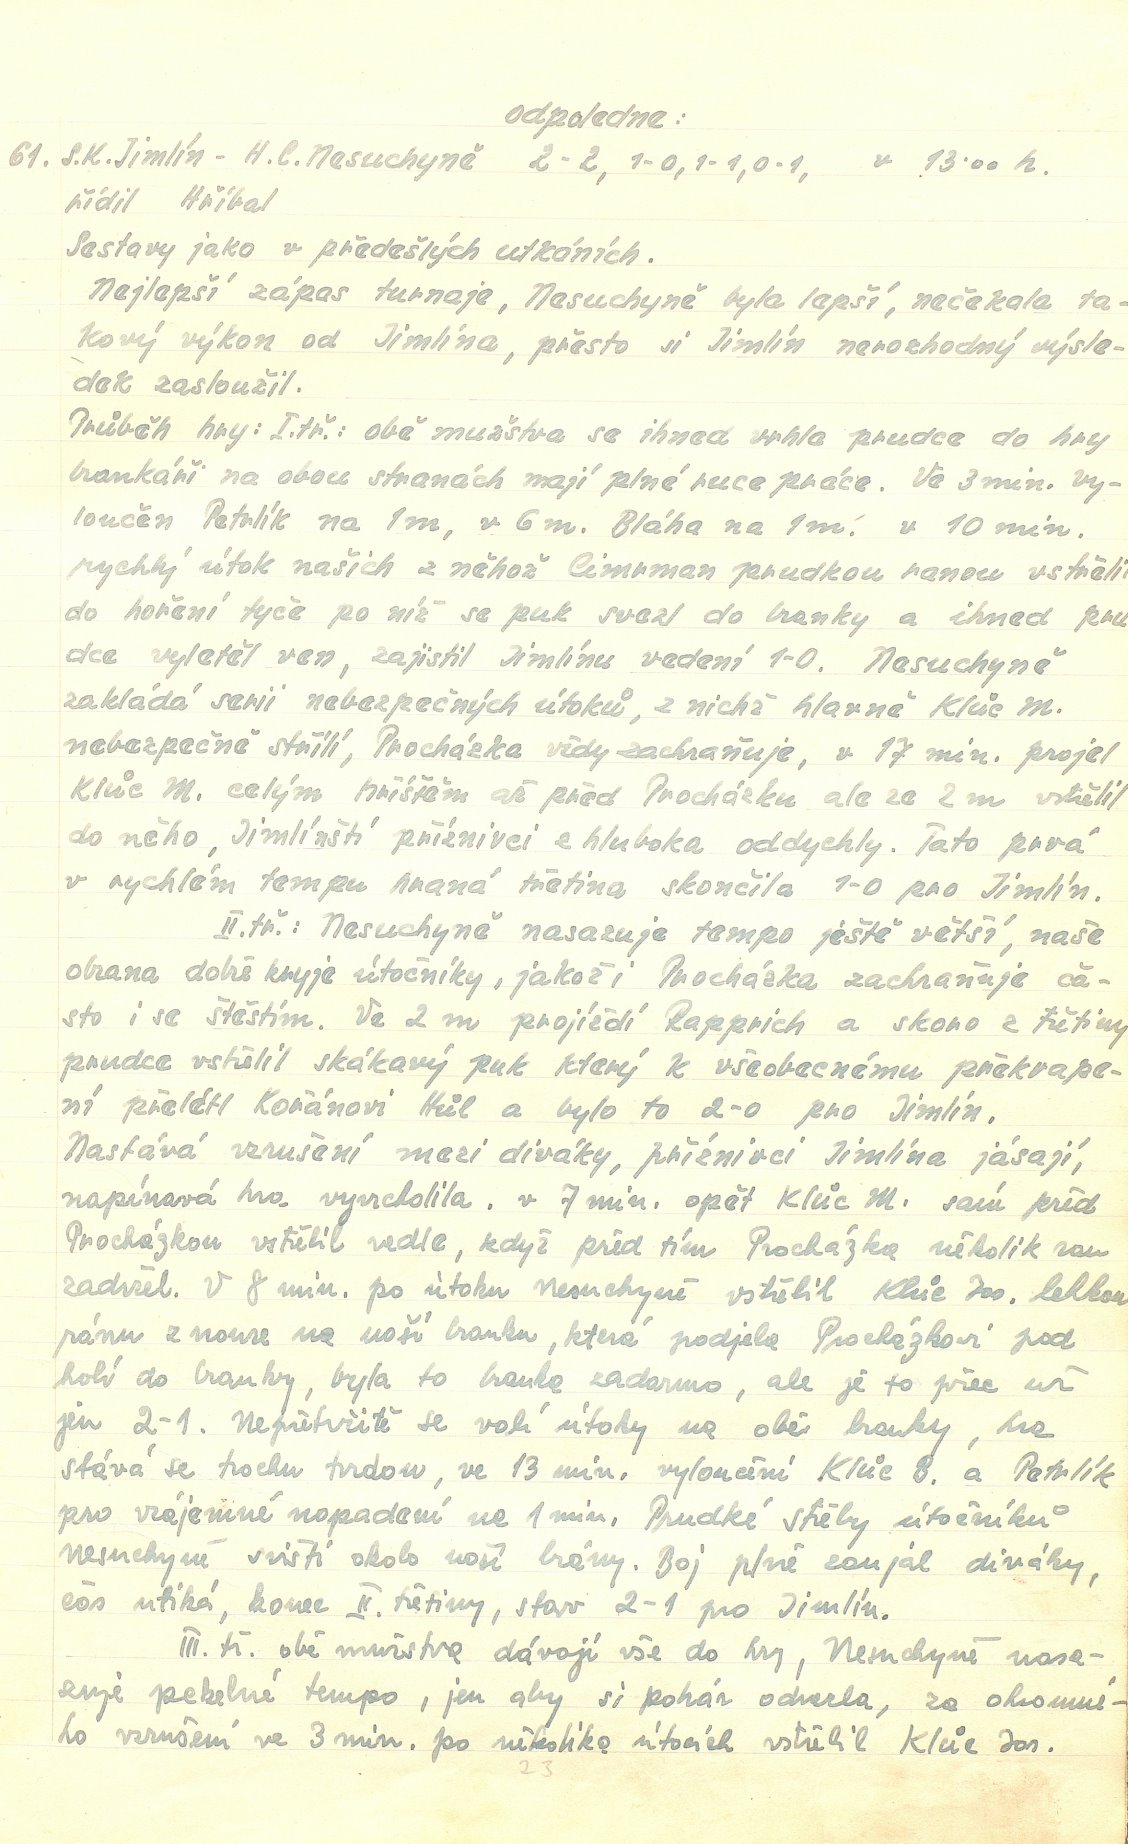 odpoledne:
61. S.K. Jimlín - H.C. Nesuchyně 2-2, 1-0, 1-1, 0-1, v 13·oo h.
řídil Hříbal
Sestavy jako v předešlých utkáních.
Nejlepší zápas turnaje, Nesuchyně byla lepší, nečekala ta-
kový výkon od Jimlína, přesto si Jimlín nerozhodný výsle-
dek zasloužil.
Průběh hry: I.tř.: obě mužstva se ihned vrhla prudce do hry
brankáři na obou stranách mají plné ruce práce. Ve 3 min. vy-
loučen Petrlík na 1m, v 6 m. Bláha na 1m. v 10 min.
rychlý útok našich z něhož Cimrman prudkou ranou vstřelil
do hoření tyče po níž se puk svezl do branky a ihned pru
dce vyletěl ven, zajistil Jimlínu vedení 1-0. Nesuchyně
zakládá serii nebezpečných útoků, z nichž hlavně Klůc M.
nebezpečně střílí, Procházka vždy zachraňuje, v 17 min. projel
Klůc M. celým hřištěm až před Procházku ale ze 2 m vstřelil
do něho, Jimlínští příznivci z hluboka oddychly. Tato prvá
v rychlém tempu hraná třetina skončila 1-0 pro Jimlín.
II.tř.: Nesuchyně nasazuje tempo ještě větší, naše
obrana dobře kryje útočníky, jakož i Procházka zachraňuje ča-
sto i se štěstím. Ve 2 m projíždí Rapprich a skoro z třetiny
prudce vstřelil skákavý puk který k všeobecnému překvape-
ní přelétl Kořánovi Hůl a bylo to 2-0 pro Jimlín.
Nastává vzrušení mezi diváky, příznivci Jimlína jásají,
napínavá hra vyvrcholila. v 7 min. opět Klůc M. sám před
Procházkou vstřelil vedle, když před tím Procházka několik ran
zadržel. V 8 min. po útoku Nesuchyně vstřelil Klůc Jos. lehkou
ránu z nouze na naší branku, která podjela Procházkovi pod
holí do branky, byla to branka zadarmo, ale je to přec už
jen 2-1. Nepřetržitě se valí útoky na obě branky, hra
stává se trochu tvrdou, ve 13 min. vyloučeni Klůc B. a Petrlík
pro vzájemné napadení na 1 min. Prudké střely útočníků
Nesuchyně sviští okolo naší brány. Boj plně zaujal diváky,
čas utíká, konec II. třetiny, stav 2-1 pro Jimlín.
III. tř. obě mužstva dávají vše do hry, Nesuchyně nasa-
zuje pekelné tempo, jen aby si pohár odvezla, za ohromné-
ho vzrušení ve 3 min. po několika útocích vstřelil Klůc Jos.
23